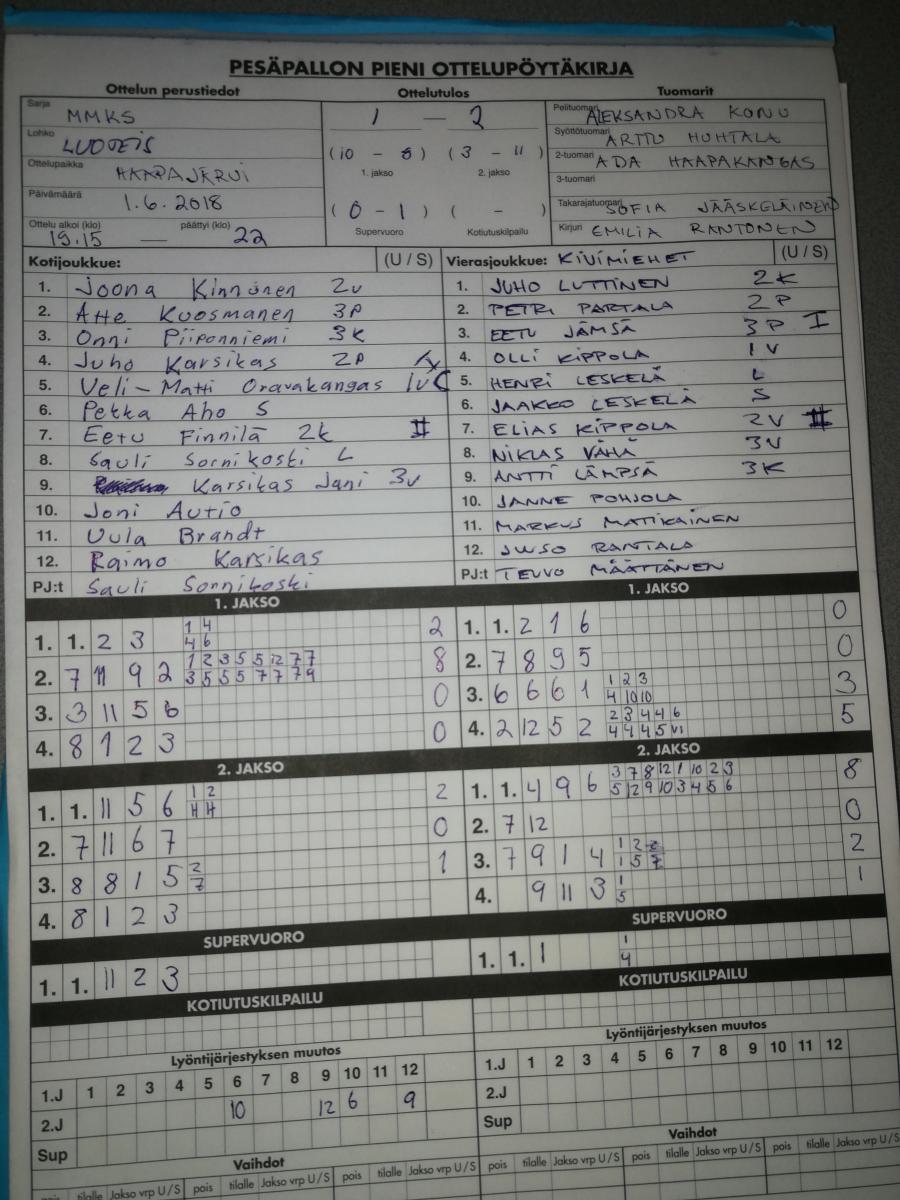 PESÄPALLON PIENI OTTELUPÖYTÄKIRJA
Ottelun perustiedot
Sarja MMKS
Lohko LUOTEIS
Ottelupaikka HAAPAJÄRVI
Päivämäärä 1.6.2018
Ottelu alkoi (klo) päättyi (klo)
19.15 — 22
Ottelutulos
1 — 2
(10 - 8) (3 - 11)
1. jakso 2. jakso
(0 - 1) ( - )
Supervuoro Kotiutuskilpailu
Tuomarit
Pelituomari ALEKSANDRA KONU
Syöttötuomari ARTTU HUHTALA
2-tuomari ADA HAAPAKANGAS
3-tuomari
Takarajatuomari SOFIA JÄÄSKELÄINEN
Kirjuri EMILIA RANTONEN
Kotijoukkue: (U / S)
1. Joona Kinnunen 2v
2. Atte Kuosmanen 3P
3. Onni Piiponniemi 3K
4. Juho Karsikas 2P
5. Veli-Matti Oravakangas 1v
6. Pekka Aho S
7. Eetu Finnilä 2k II
8. Sauli Sornikoski L
9. Karsikas Jani 3v
10. Joni Autio
11. Uula Brandt
12. Raimo Karsikas
PJ:t Sauli Sornikoski
Vierasjoukkue: KIVIMIEHET (U / S)
1. JUHO LUTTINEN 2K
2. PETRI PARTALA 2P
3. EETU JÄMSÄ 3P I
4. OLLI KIPPOLA 1V
5. HENRI LESKELÄ L
6. JAAKKO LESKELÄ S
7. ELIAS KIPPOLA 2V II
8. NIKLAS VÄHÄ 3V
9. ANTTI LÄMPSÄ 3K
10. JANNE POHJOLA
11. MARKUS MATIKAINEN
12. JUUSO RANTALA
PJ:t TEUVO MÄÄTTÄNEN
1. JAKSO
1. 1. 2 3 2
1 4
4 6
2. 7 11 9 2 8
1 2 3 5 5 12 7 7
3 5 5 5 7 7 7 9
3. 3 11 5 6 0
4. 8 1 2 3 0
1. JAKSO
1. 1. 2 1 6 0
2. 7 8 9 5 0
3. 6 6 6 1 3
1 2 3
4 10 10
4. 2 12 5 2 5
2 3 4 4 6
4 4 4 5 VI
2. JAKSO
1. 1. 11 5 6 2
1 2
2. 7 11 6 7 0
3. 8 8 1 5 1
2
7
4. 8 1 2 3
2. JAKSO
1. 1. 4 9 6 8
3 7 8 12 1 10 2 3
5 12 9 10 3 4 5 6
2. 7 12 0
3. 7 9 1 4 2
1 2
1 5
4. 9 11 3 1
1
5
SUPERVUORO
1. 1. 11 2 3
SUPERVUORO
1. 1. 1
1
4
KOTIUTUSKILPAILU
KOTIUTUSKILPAILU
Lyöntijärjestyksen muutos
1.J 1 2 3 4 5 6 7 8 9 10 11 12
2.J 10 12 6 9
Sup
Lyöntijärjestyksen muutos
1.J 1 2 3 4 5 6 7 8 9 10 11 12
2.J
Sup
Vaihdot
pois tilalle Jakso vrp U/S pois tilalle Jakso vrp U/S pois tilalle Jakso vrp U/S
Vaihdot
pois tilalle Jakso vrp U/S pois tilalle Jakso vrp U/S pois tilalle Jakso vrp U/S